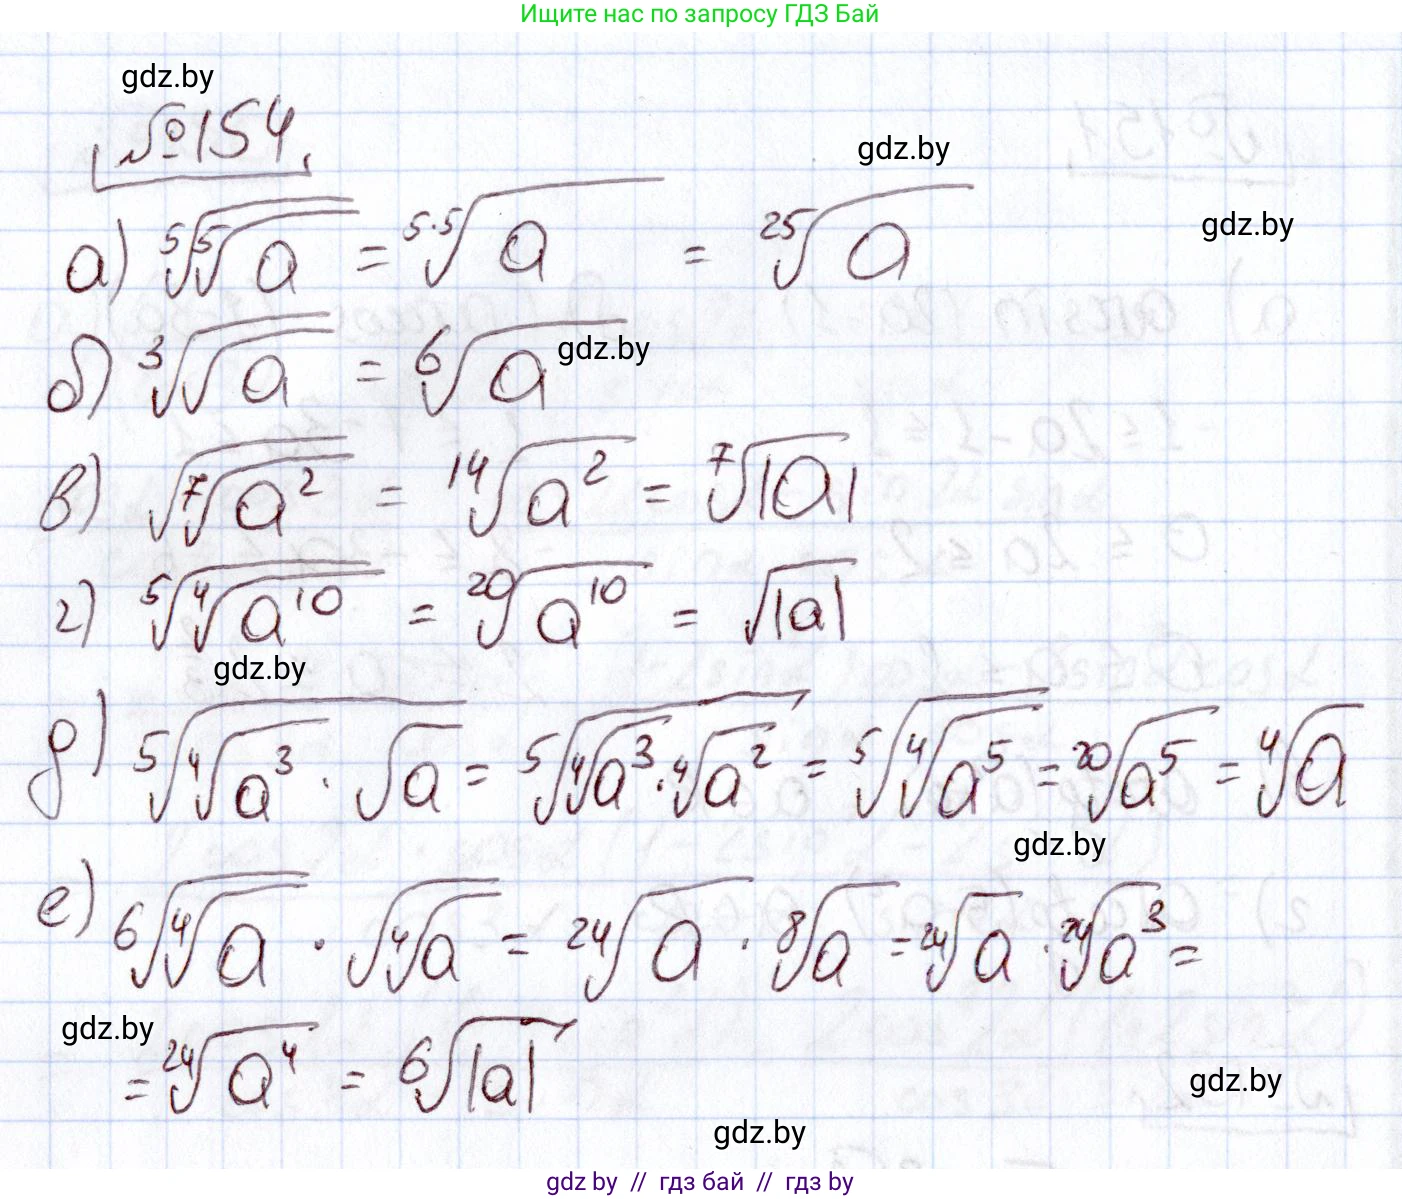 Ищите нас по запросу ГДЗ Бай
gdz.by
№154
gdz.by
gdz.by
а) ⁵√(⁵√a) = ⁵·⁵√a = ²⁵√a
б) ³√(√a) = ⁶√a
gdz.by
в) √(⁷√a²) = ¹⁴√a² = ⁷√|a|
г) ⁵√(⁴√a¹⁰) = ²⁰√a¹⁰ = √|a|
gdz.by
д) ⁵√(⁴√a³ · √a) = ⁵√(⁴√a³ · ⁴√a²) = ⁵√(⁴√a⁵) = ²⁰√a⁵ = ⁴√a
gdz.by
е) ⁶√(⁴√a) · √(⁴√a) = ²⁴√a · ⁸√a = ²⁴√a · ²⁴√a³ =
gdz.by
= ²⁴√a⁴ = ⁶√|a|
gdz.by
gdz.by
gdz by // гдз бай // гдз by